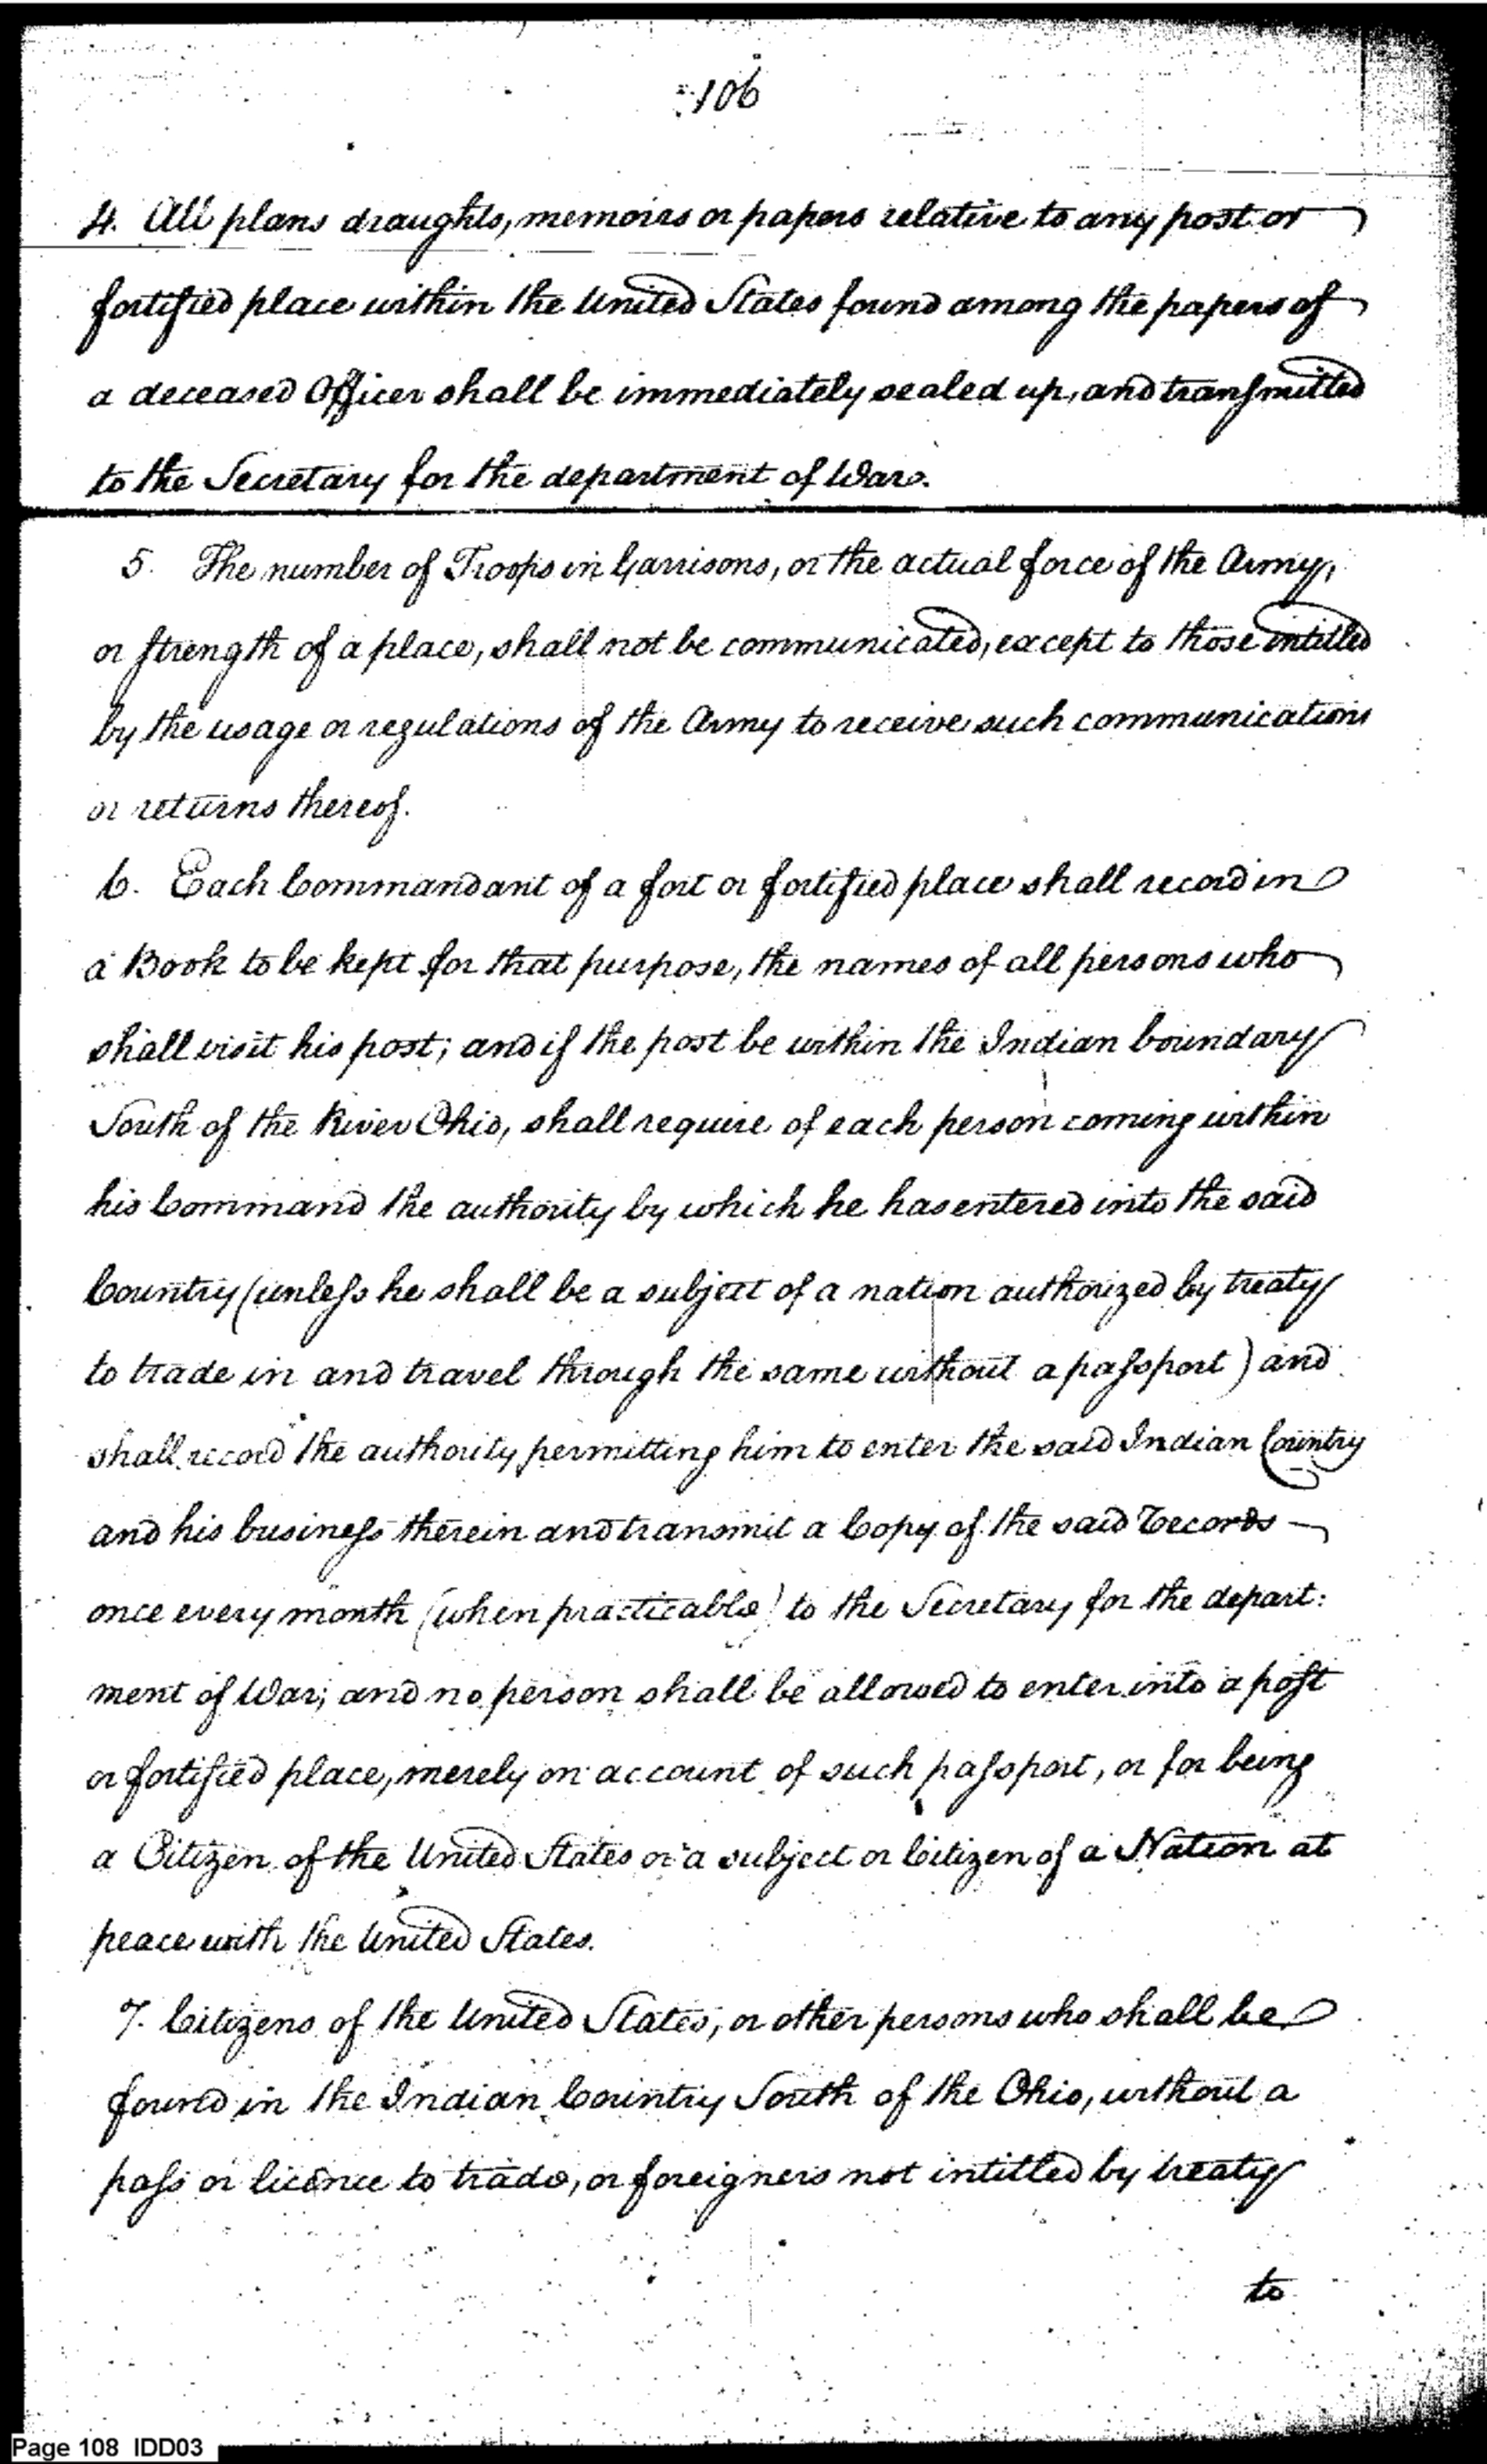 106
4. All plans draughts, memoirs or papers relative to any post or
fortified place within the United States found among the papers of
a deceased Officer shall be immediately sealed up, and transmitted
to the Secretary for the department of War.
5. The number of Troops in Garrisons, or the actual force of the Army,
or strength of a place, shall not be communicated, except to those intitled
by the usage or regulations of the Army to receive such communications
or returns thereof.
6. Each Commandant of a fort or fortified place shall record in
a Book to be kept for that purpose, the names of all persons who
shall visit his post; and if the post be within the Indian boundary
South of the River Ohio, shall require of each person coming within
his Command the authority by which he has entered into the said
Country (unless he shall be a subject of a nation authorized by treaty
to trade in and travel through the same without a passport) and
shall record the authority permitting him to enter the said Indian Country
and his business therein and transmit a Copy of the said Records
once every month (when practicable) to the Secretary for the depart:
ment of War; and no person shall be allowed to enter into a post
or fortified place, merely on account of such passport, or for being
a Citizen of the United States or a subject or Citizen of a Nation at
peace with the United States.
7. Citizens of the United States, or other persons who shall be
found in the Indian Country South of the Ohio, without a
pass or licence to trade, or foreigners not intitled by treaty
to
Page 108 IDD03